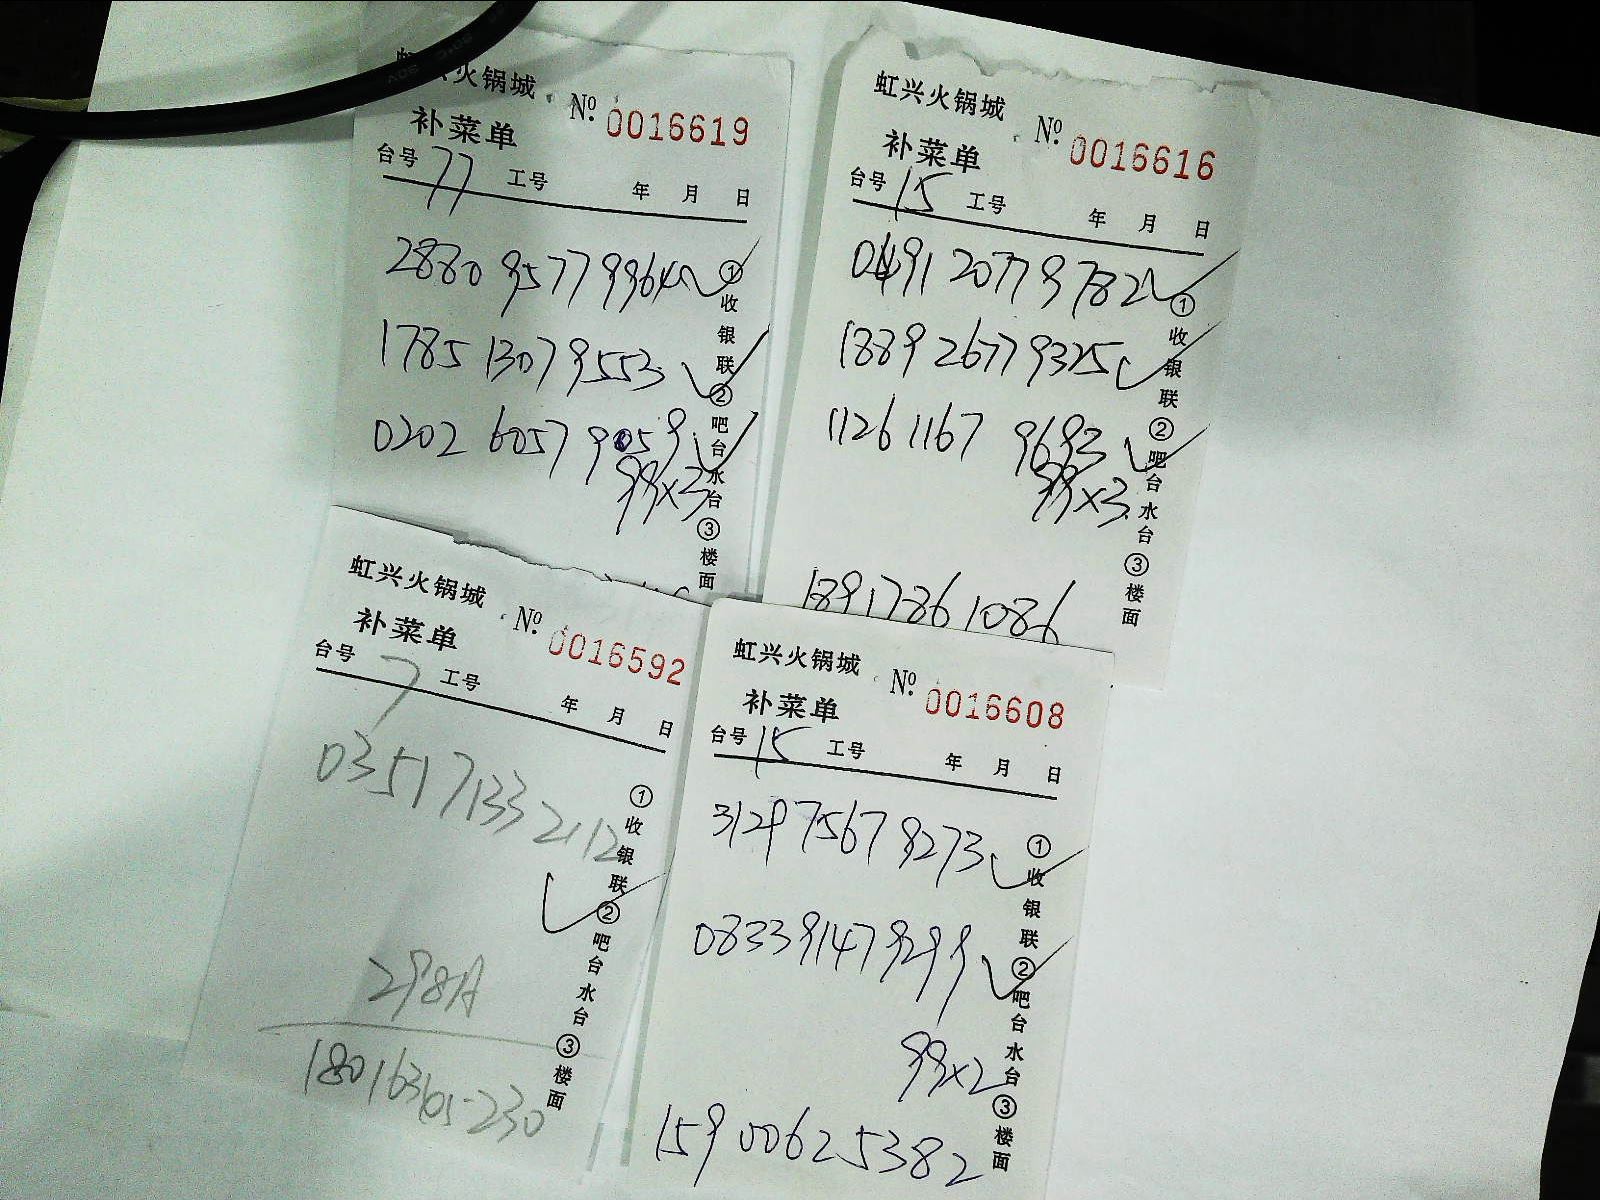 虹兴火锅城
补菜单 Nº. 0016619
台号 77 工号 年 月 日
2880 9577 9964
1785 1307 9553
0202 6057 9059
99x3
①收银联②吧台水台③楼面
虹兴火锅城
补菜单 Nº. 0016616
台号 15 工号 年 月 日
0491 2077 9782
1889 2677 9325
1126 1167 9693
99x3
18917861086
①收银联②吧台水台③楼面
虹兴火锅城
补菜单 Nº. 0016592
台号 7 工号 年 月 日
0351 7133 2112
298A
①收银联②吧台水台③楼面
虹兴火锅城
补菜单 Nº. 0016608
台号 15 工号 年 月 日
3129 7567 9273
0833 9147 9299
99x2
15900625382
①收银联②吧台水台③楼面